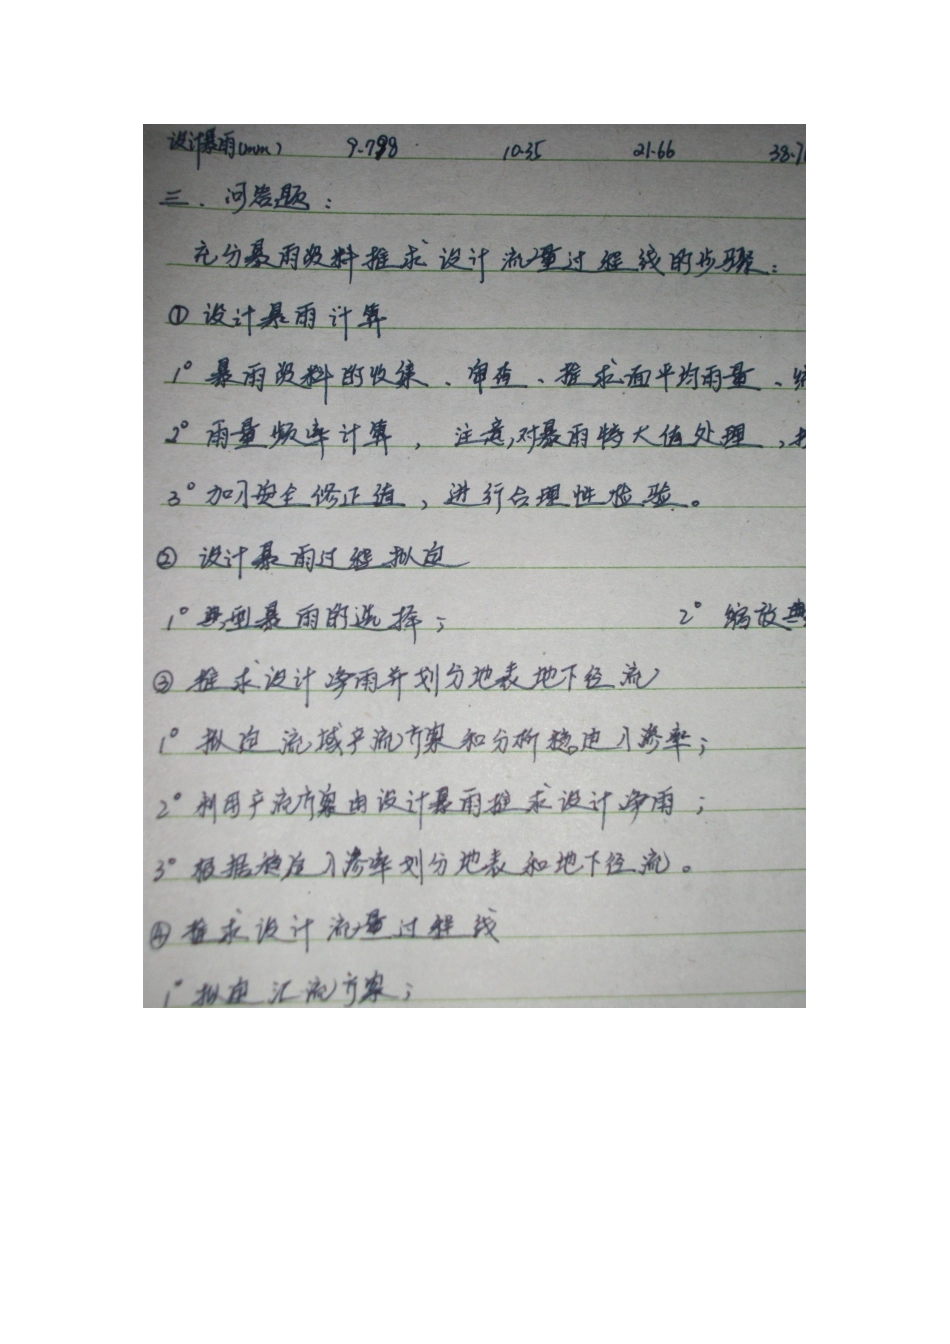 设计暴雨(mm) 9.798 10.35 21.66 38.7
三、问答题：
充分暴雨资料推求设计流量过程线的步骤：
① 设计暴雨计算
1° 暴雨资料的收集、审查、推求面平均雨量、
2° 雨量频率计算，注意，对暴雨特大值处理，
3° 加习安全修正值，进行合理性检验。
② 设计暴雨过程拟定
1° 典型暴雨的选择； 2° 缩放典
③ 推求设计净雨并划分地表地下径流
1° 拟定流域产流方案和分析稳定入渗率；
2° 利用产流方案由设计暴雨推求设计净雨；
3° 根据稳定入渗率划分地表和地下径流。
④ 推求设计流量过程线
1° 拟定汇流方案；